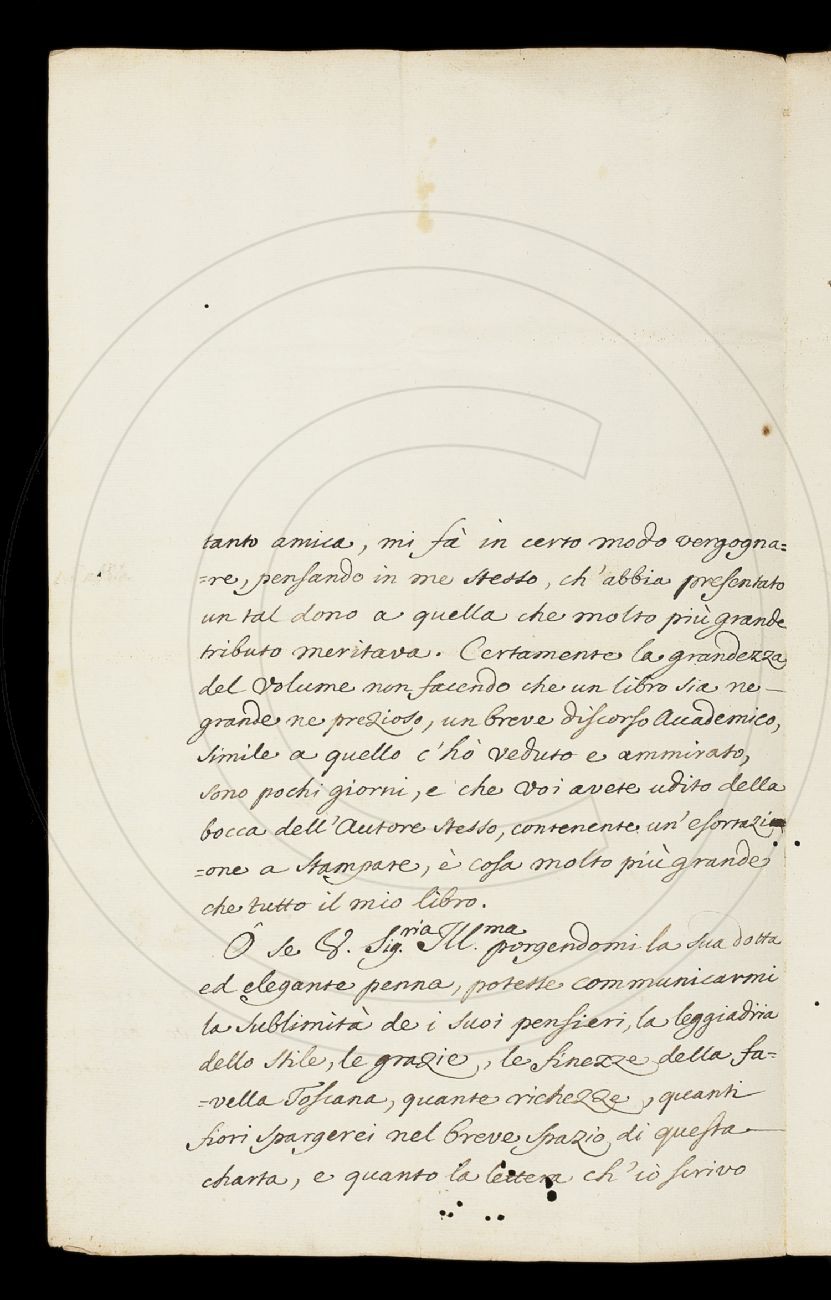 tanto amica, mi fà in certo modo vergogna=
=re, pensando in me stesso, ch'abbia presentato
un tal dono a quella che molto più grande
tributo meritava. Certamente la grandezza
del volume non facendo che un libro sia ne —
grande ne prezioso, un breve discorso Accademico,
simile a quello c'hò veduto e ammirato,
sono pochi giorni, e che voi avete udito della
bocca dell'Autore stesso, contenente un'esortazi=
=one a stampare, è cosa molto più grande
che tutto il mio libro.
Ô se V. Sig.ria Ill.ma porgendomi la sua dotta
ed elegante penna, potesse communicarmi
la sublimità de i suoi pensieri, la leggiadria
dello stile, le grazie, le finezze della fa=
=vella Toscana, quante richezze, quanti
fiori spargerei nel breve spazio di questa —
charta, e quanto la lettera ch'iò scrivo